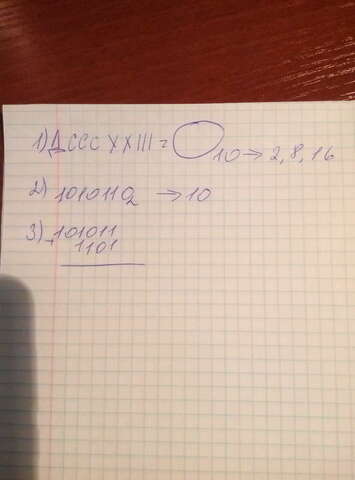 1) Д CCC XXIII = 10 → 2, 8, 16
2) 1010110₂ → 10
3) 101011
+ 1101